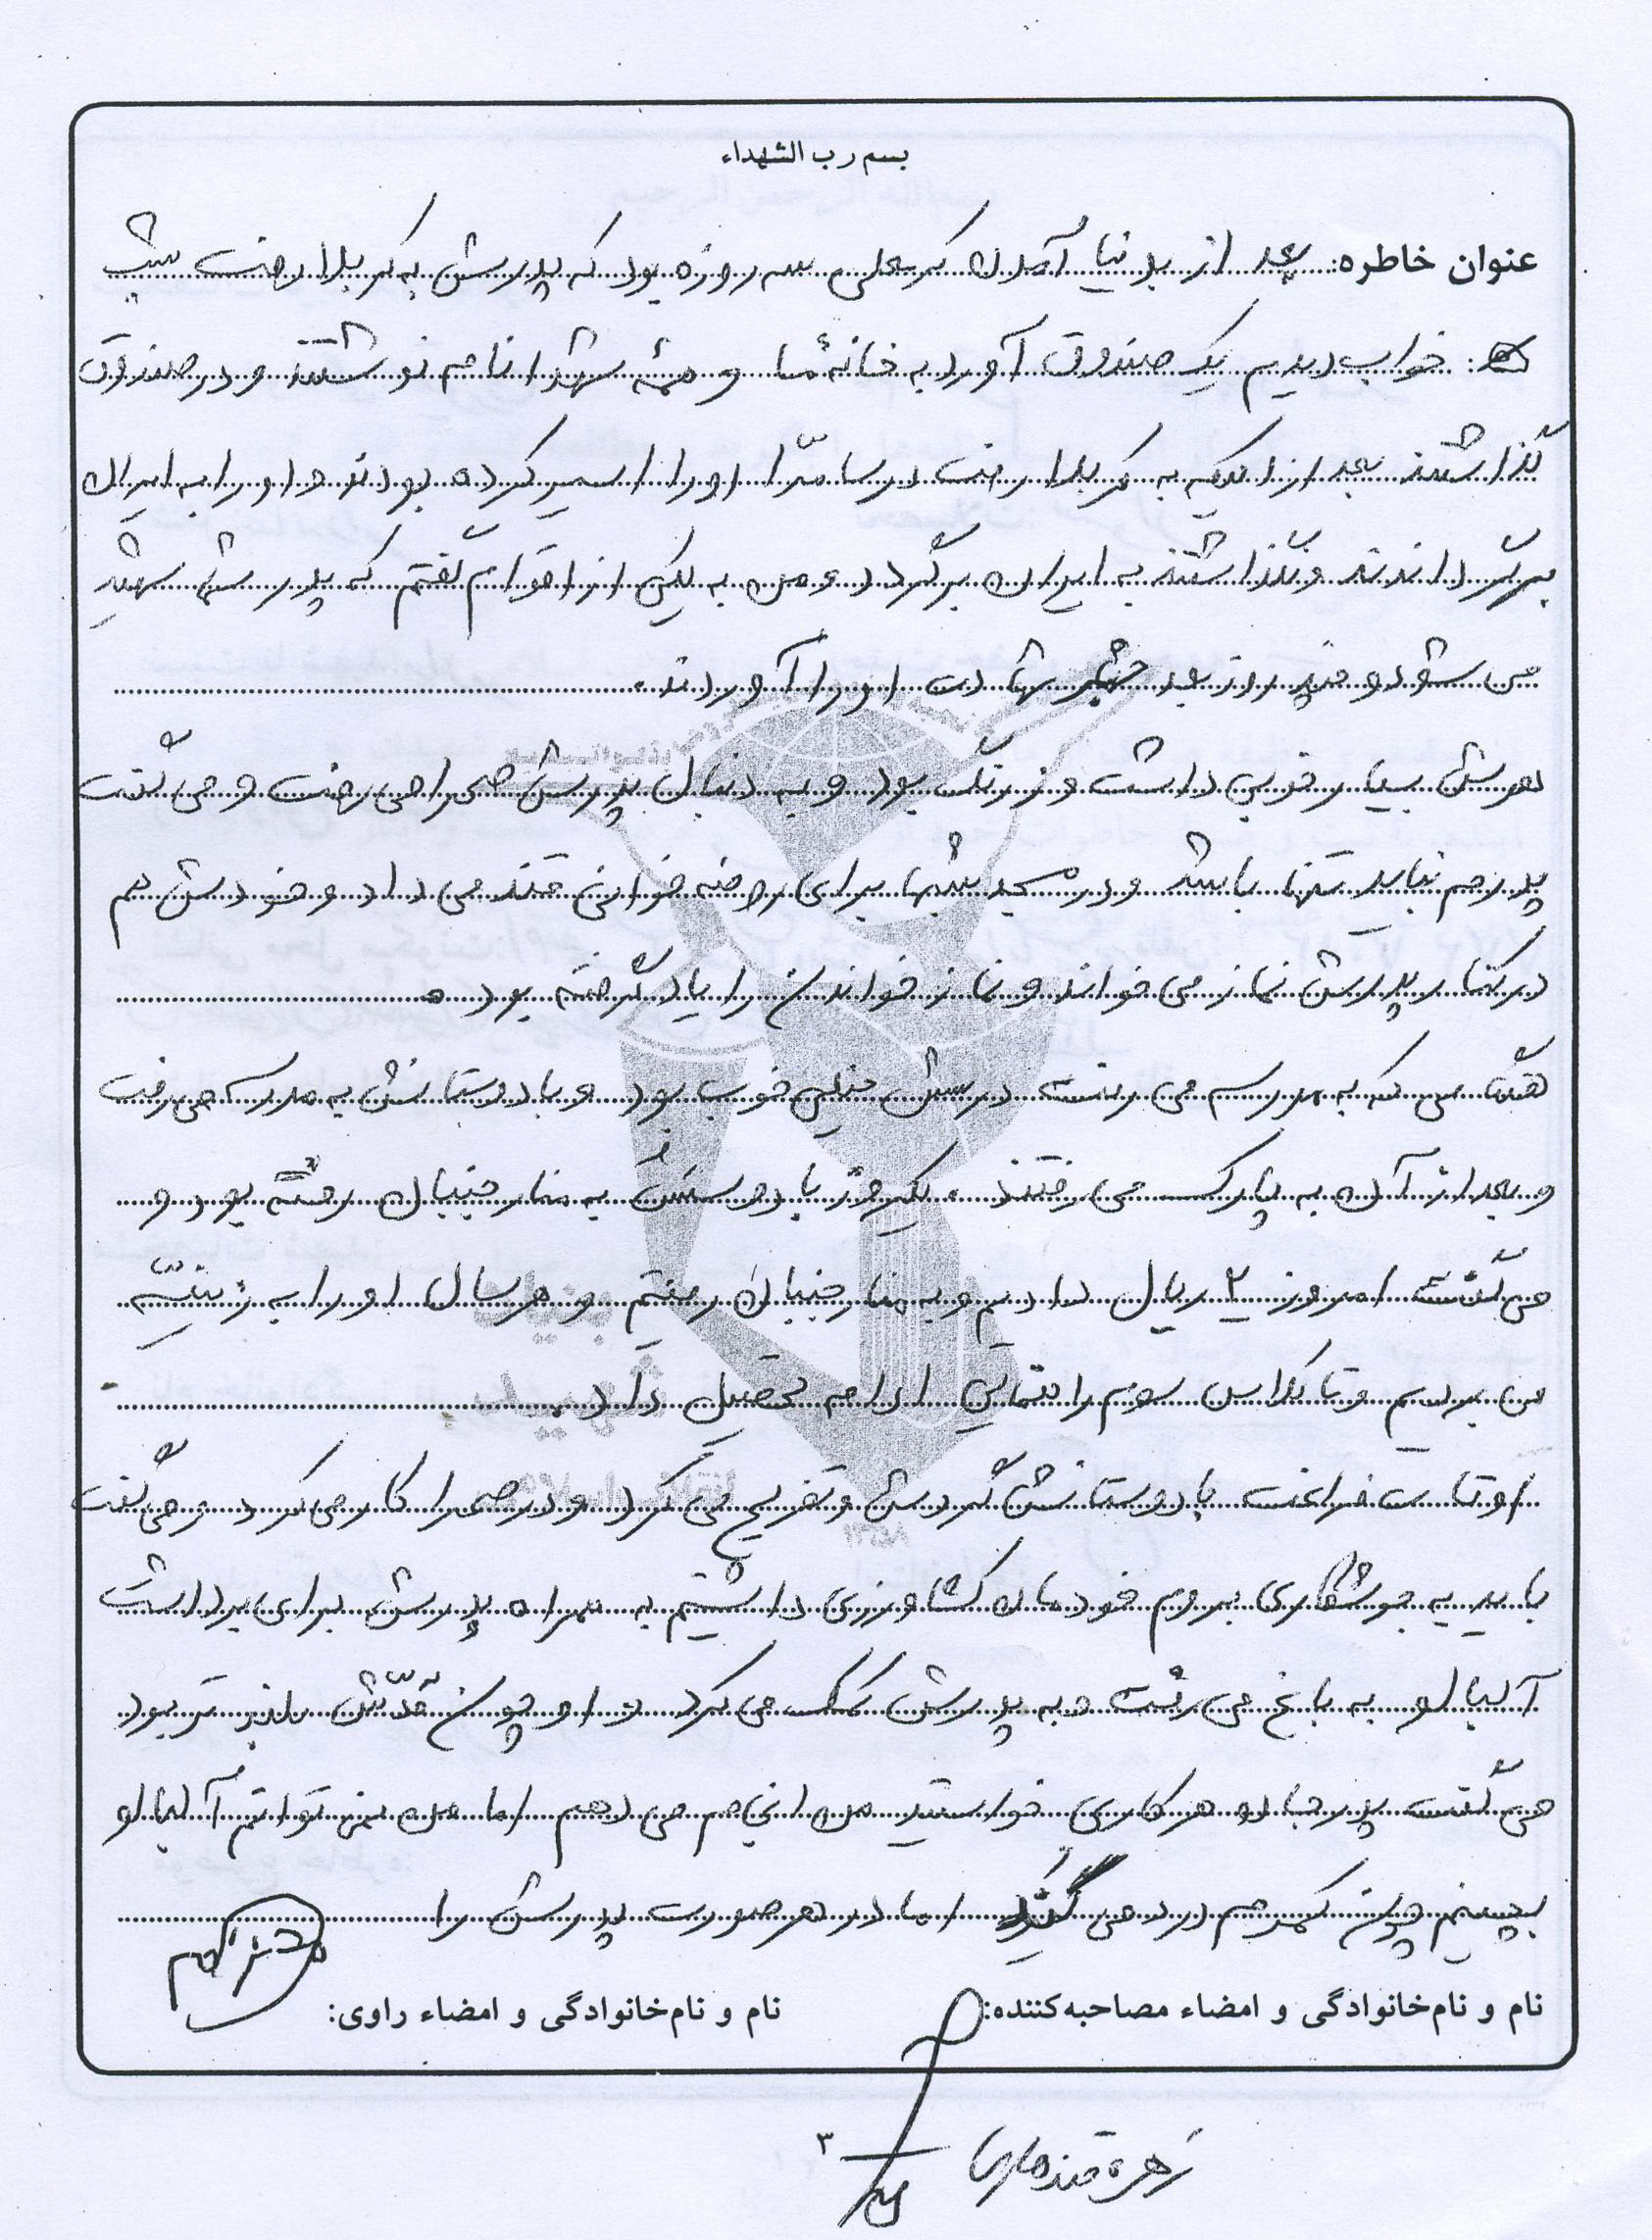 بسم رب الشهداء
عنوان خاطره: بعد از بدنیا آمدن کرمعلی سه روزه بود که پدرش به کربلا رفت شب
خواب دیدیم یک صندوق آورد به خانهٔ ما و همهٔ شهدا نامه نوشتند و در صندوق
گذاشتند بعد از اینکه به کربلا رفت در سامرّا او را اسیر کرده بودند و او را به ایران
برگرداندند و نگذاشتند به ایران برگردد و من به یکی از اقوام گفتم که پدر شما شهید
می شود و چند روز بعد خبر شهادت او را آوردند.
هوش بسیار خوبی داشت و زرنگ بود و به دنبال پدرش صحرا می رفت و می گفت
پدرم نباید تنها باشد و در مسجد شبها برای روضه خوانی قند می داد و خودش هم
در کنار پدرش نماز می خواند و نماز خواندن را یاد گرفته بود.
هنگامی که به مدرسه می رفت درسش خیلی خوب بود و با دوستانش به مدرسه می رفت
و بعد از آن به پارک می رفتند. یکروز با دوستش به منار جنبان رفته بود و
می گفت امروز ۲ ریال دادیم و به منار جنبان رفتیم و هر سال او را به زینبیّه
می بردیم و تا کلاس سوم راهنمایی ادامه تحصیل داد.
اوقات فراغت با دوستانش گردش و تفریح می کرد و در صحرا کار می کرد و می گفت
باید به جوشکاری بروم خودمان کشاورزی داشتیم به همراه پدرش برای برداشت
آلبالو به باغ می رفت و به پدرش کمک می کرد و او چون قدّش بلند تر بود
می گفت پدر جان هر کاری خواستید من انجام می دهم اما من نمی توانم آلبالو
بچینم چون کمرم درد می گیرد اما در هر صورت پدرش را
نام و نام‌خانوادگی و امضاء مصاحبه‌کننده:
نام و نام‌خانوادگی و امضاء راوی:
زهره قندهاریان
۳
بنیاد
شهید